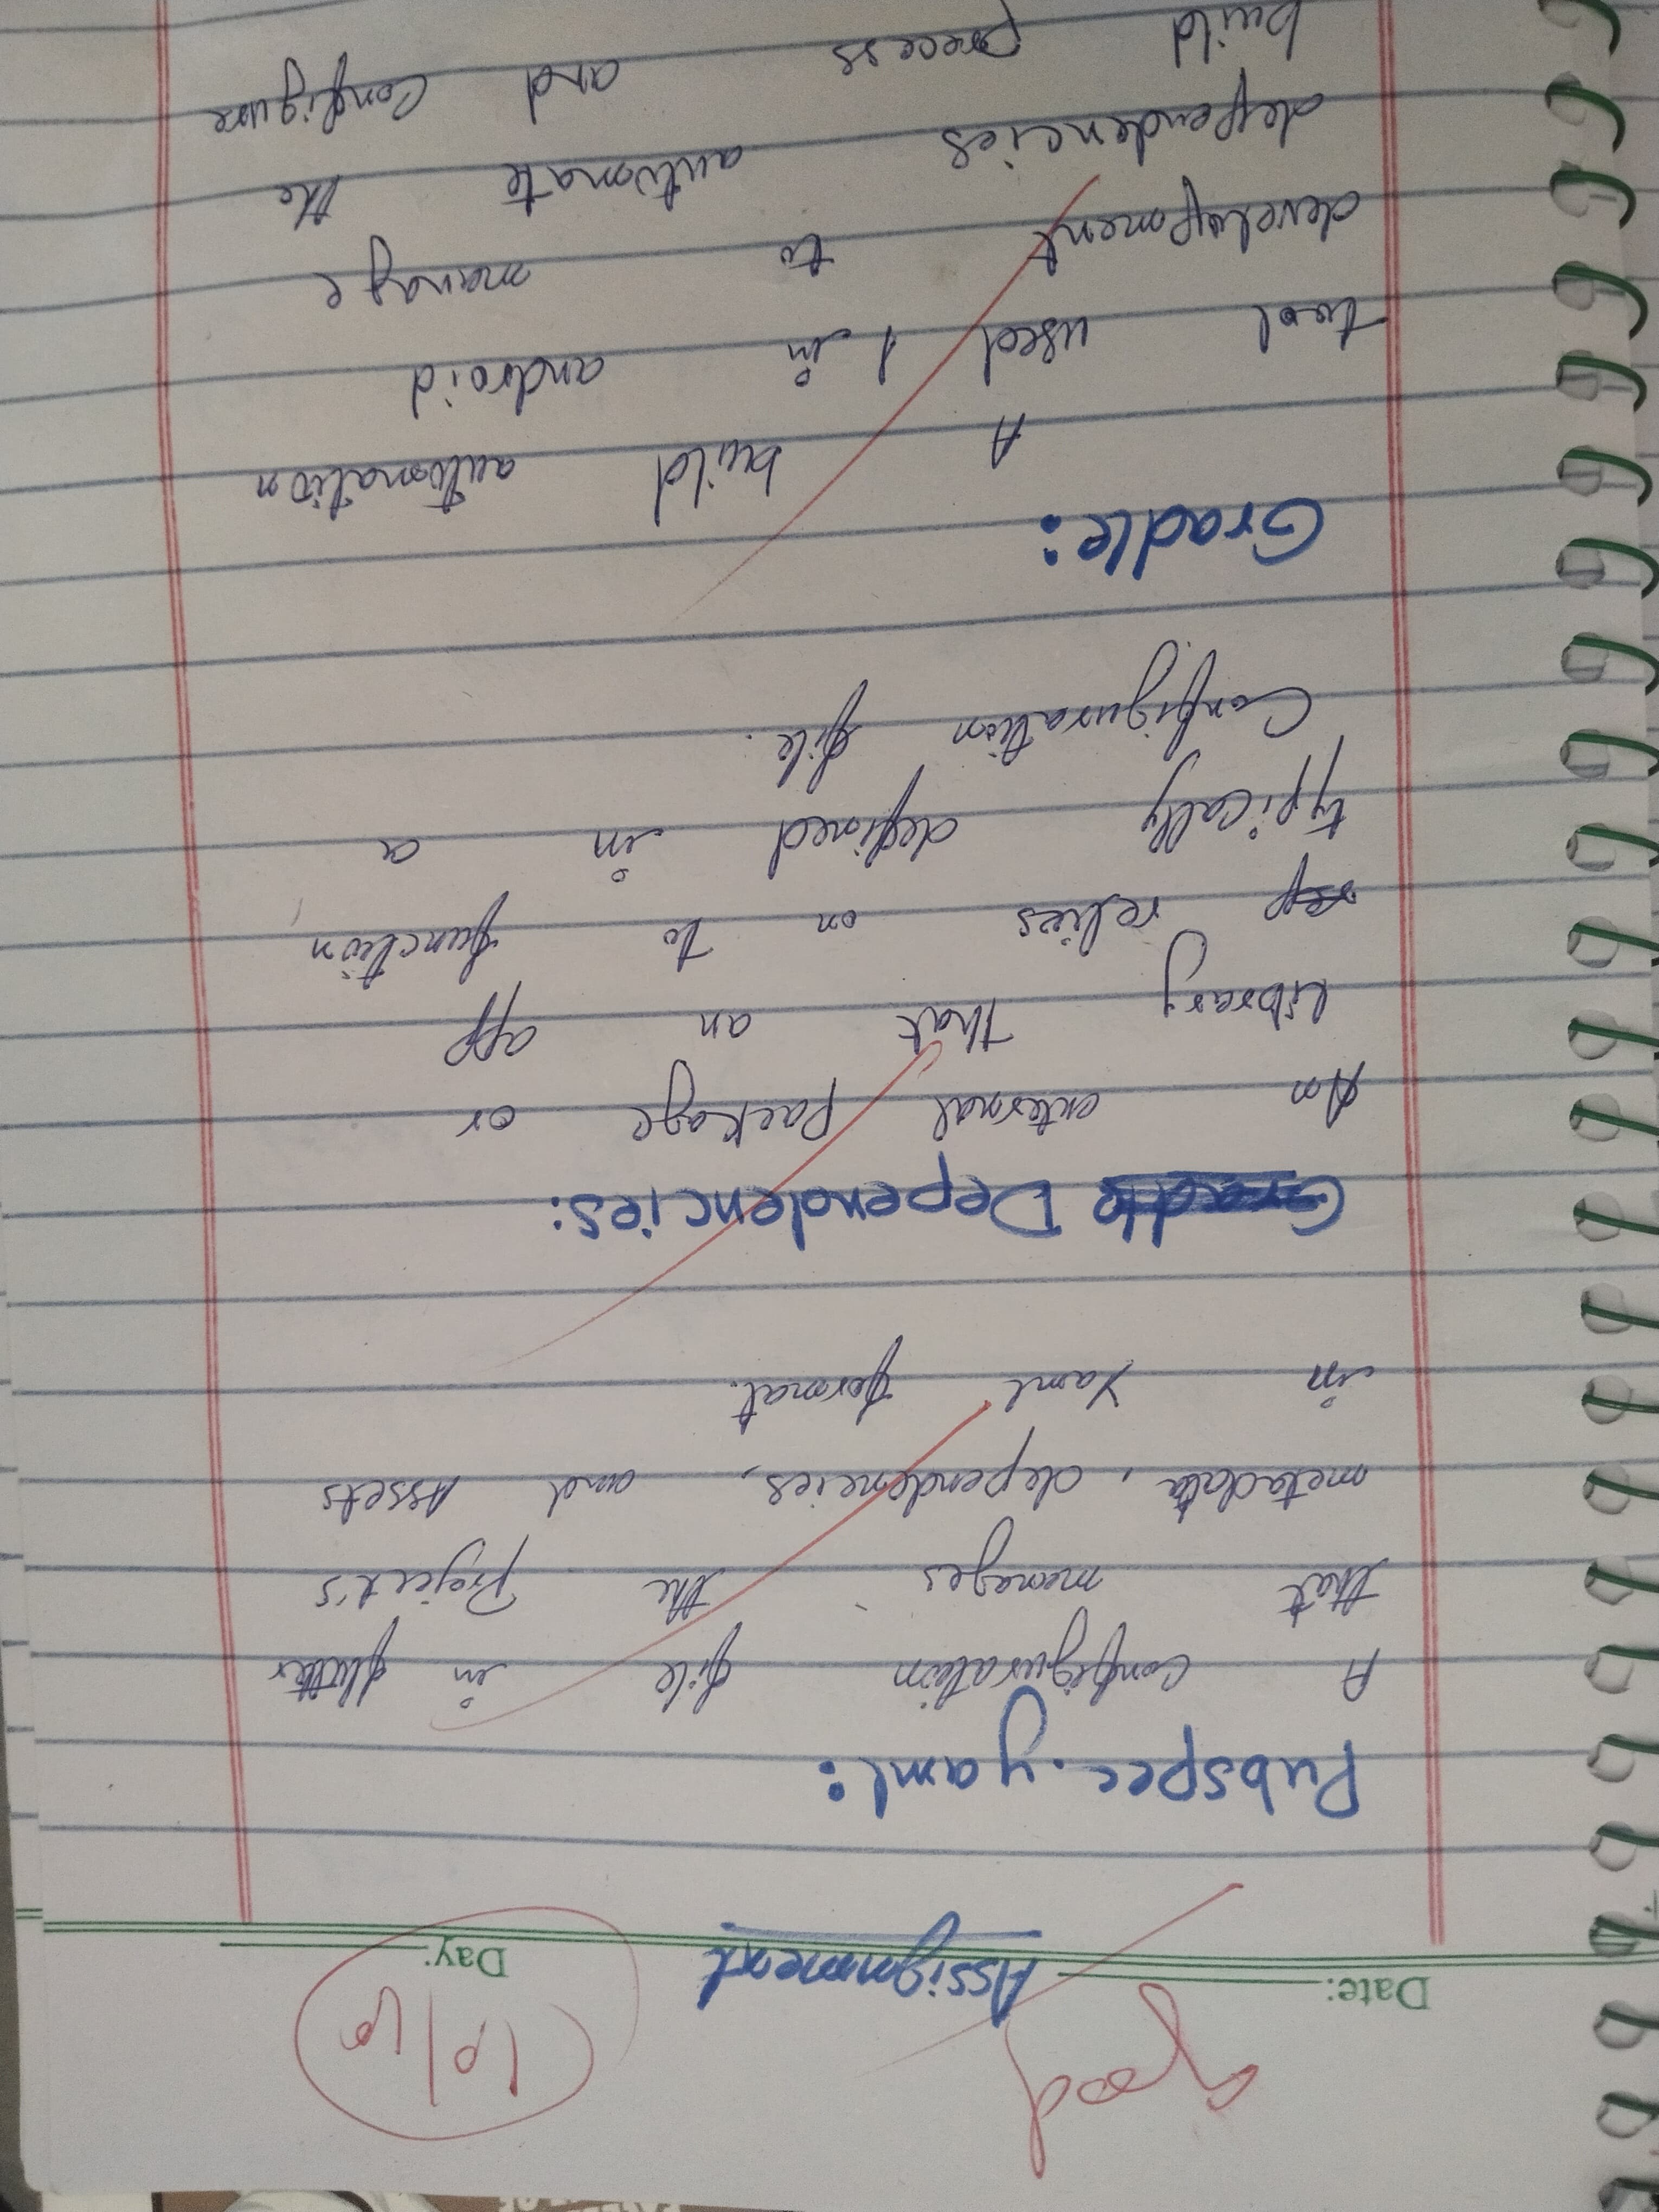 Good
10/10
Date: Assignment Day:
Pubspec.yaml:
A configuration file in flutter
that manages the Project's
metadata, dependencies, and Assets
in Yaml format.
Gradle Dependencies:
An external package or
library that an app
rep relies on to function,
typically defined in a
Configuration file.
Gradle:
A build automation
tool used in android
development to manage
dependencies automate the
build process and Configure